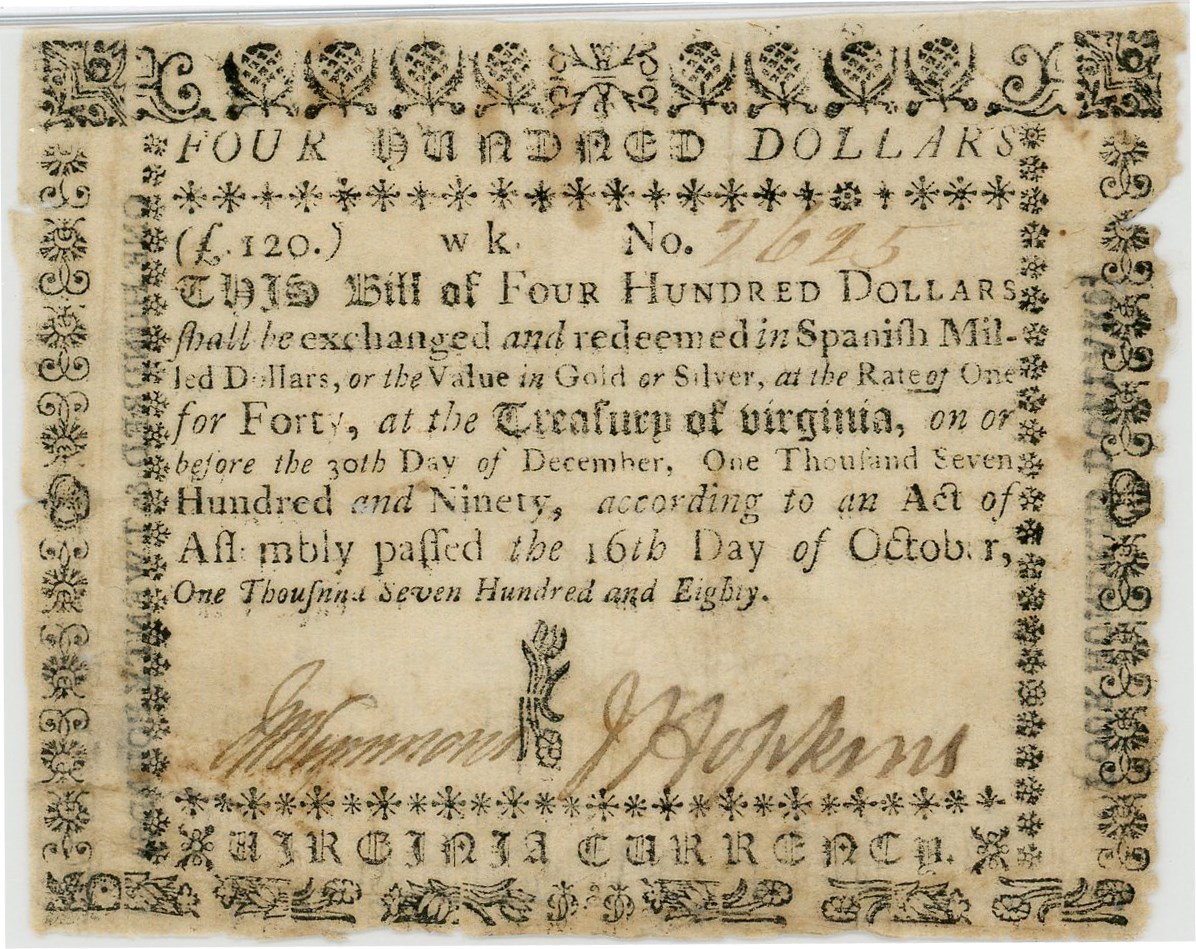 FOUR HUNDNED DOLLARS
(£.120.) w k. No.
THIS Bill of FOUR HUNDRED DOLLARS
ſhall be exchanged and redeemed in Spaniſh Mil-
led Dollars, or the Value in Gold or Silver, at the Rate of One
for Forty, at the Treaſury of virginia, on or
before the 30th Day of December, One Thouſand Seven
Hundred and Ninety, according to an Act of
Aſſembly paſſed the 16th Day of October,
One Thouſnnd Seven Hundred and Eighty.
J Hopkins
VIRGINIA CURRENCY.